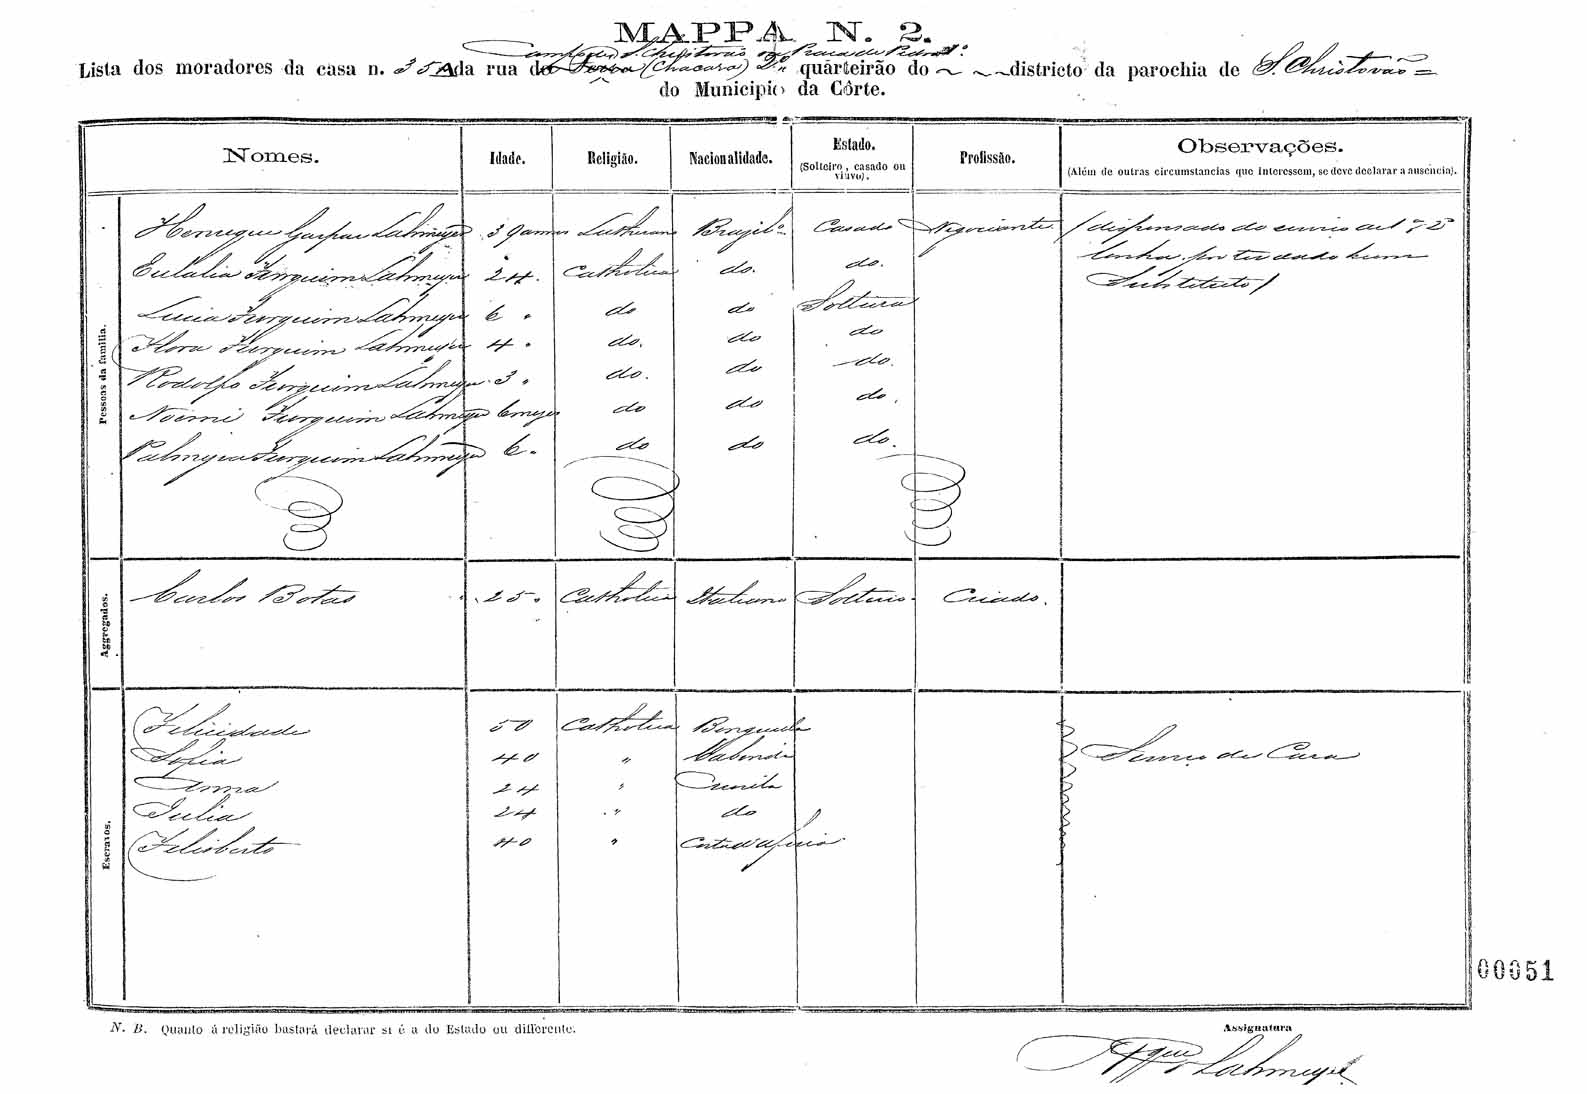 MAPPA N. 2.
Campo de S. Christovão ou Praça de Pedro 1º
Lista dos moradores da casa n. 35A da rua do (Chacara) 2º quarteirão do districto da parochia de S. Christovão
do Municipio da Côrte.
Nomes. Idade. Religião. Nacionalidade. Estado. (Solteiro, casado ou viuvo). Profissão. Observações. (Além de outras circumstancias que interessem, se deve declarar a ausencia).
Pessoas da familia.
Henrique Gaspar Lahmeyer 39 annos Lutherano Brazilº Casado Negociante (dispensado do
Eulalia Furquim Lahmeyer 24 . Catholica do. do. linha por ter dado hum
Lucia Furquim Lahmeyer 6 . do do Solteira Substituto)
Flora Furquim Lahmeyer 4 . do. do do
Rodolfo Furquim Lahmeyer 3 " do. do do.
Noemi Furquim Lahmeyer 6 mezes do do do.
Palmyra Furquim Lahmeyer 6 . do do do.
Aggregados.
Carlos Botas 25 . Catholica Italiano Solteiro Criado.
Escravos.
Felicidade 50 Catholica Benguela
Sofia 40 " Cabinda Serviço de Casa
Anna 24 " Crioila
Julia 24 " do
Felisberto 40 " Costa d'Africa
00051
N. B. Quanto á religião bastará declarar si é a do Estado ou differente.
Assignatura
Lahmeyer